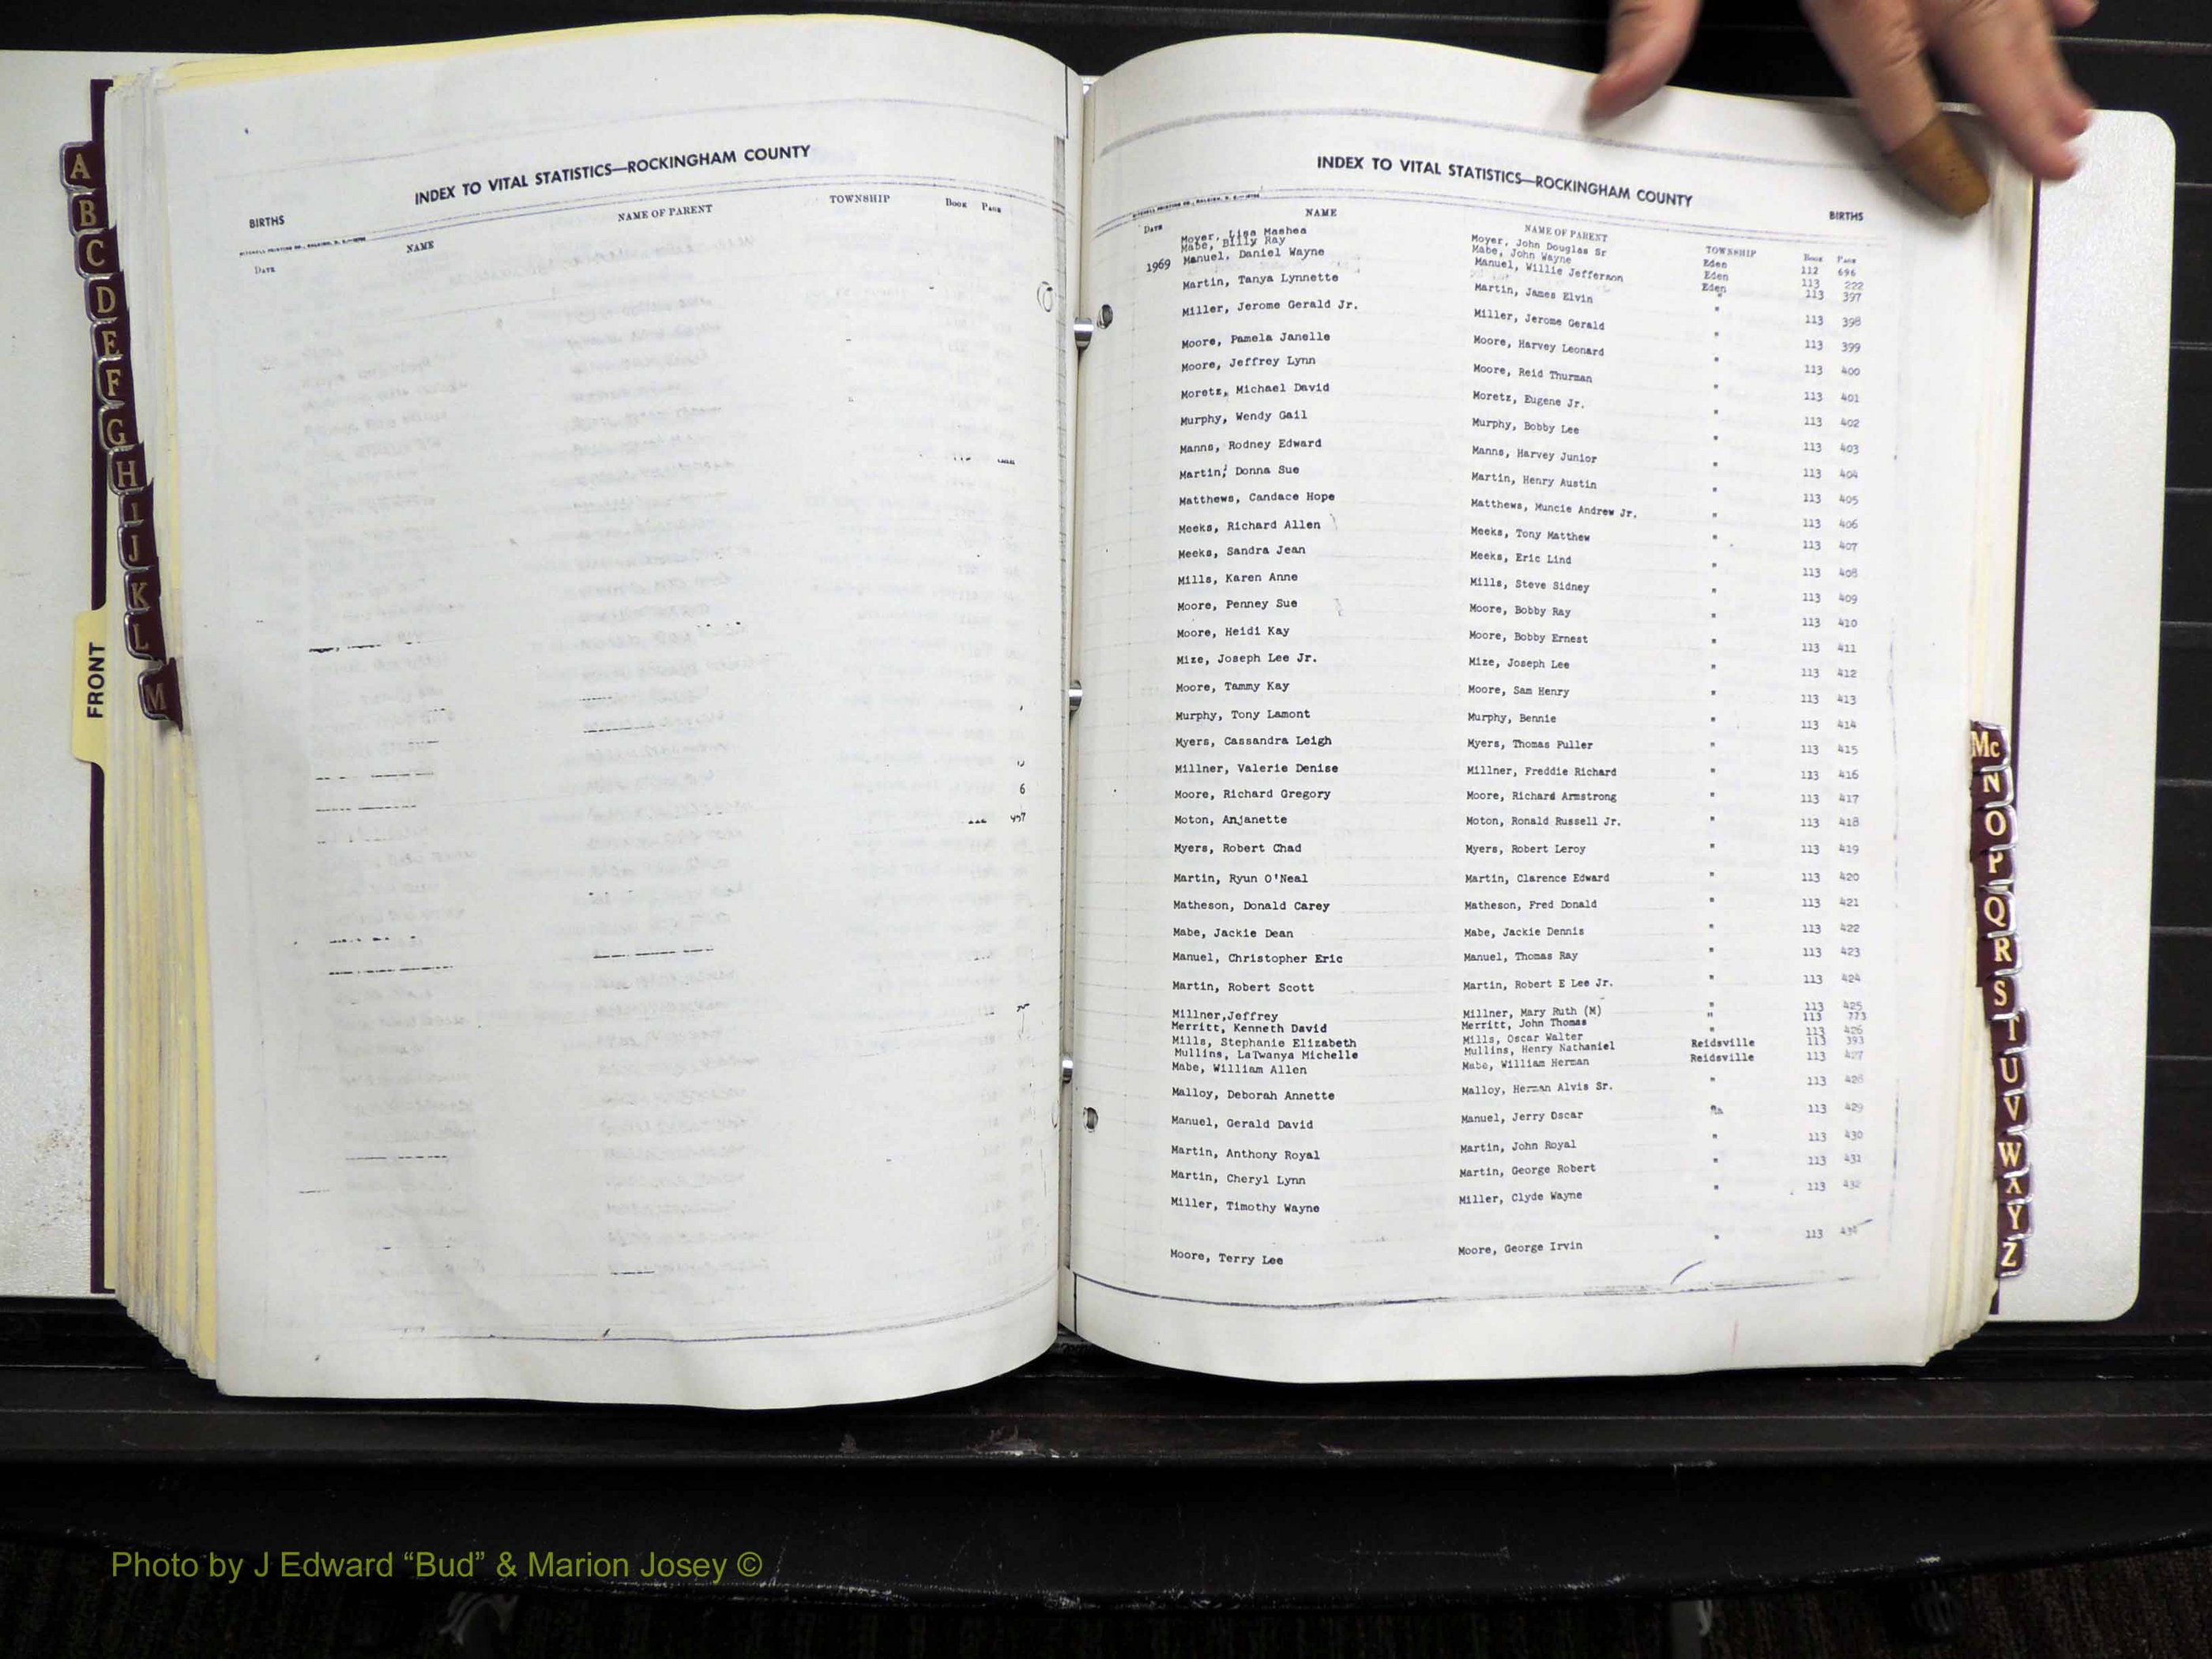 A
B
C
D
E
F
G
H
I
J
K
L
M
FRONT
INDEX TO VITAL STATISTICS—ROCKINGHAM COUNTY
BIRTHS
DATE NAME NAME OF PARENT TOWNSHIP BOOK PAGE
6
INDEX TO VITAL STATISTICS—ROCKINGHAM COUNTY
BIRTHS
DATE NAME NAME OF PARENT TOWNSHIP BOOK PAGE
Moyer, Lisa Mashea Moyer, John Douglas Sr Eden 112 696
Mabe, Billy Ray Mabe, John Wayne Eden 113 222
1969 Manuel, Daniel Wayne Manuel, Willie Jefferson Eden 113 397
Martin, Tanya Lynnette Martin, James Elvin " 113 398
Miller, Jerome Gerald Jr. Miller, Jerome Gerald " 113 399
Moore, Pamela Janelle Moore, Harvey Leonard " 113 400
Moore, Jeffrey Lynn Moore, Reid Thurman " 113 401
Moretz, Michael David Moretz, Eugene Jr. " 113 402
Murphy, Wendy Gail Murphy, Bobby Lee " 113 403
Manns, Rodney Edward Manns, Harvey Junior " 113 404
Martin, Donna Sue Martin, Henry Austin " 113 405
Matthews, Candace Hope Matthews, Muncie Andrew Jr. " 113 406
Meeks, Richard Allen Meeks, Tony Matthew " 113 407
Meeks, Sandra Jean Meeks, Eric Lind " 113 408
Mills, Karen Anne Mills, Steve Sidney " 113 409
Moore, Penney Sue Moore, Bobby Ray " 113 410
Moore, Heidi Kay Moore, Bobby Ernest " 113 411
Mize, Joseph Lee Jr. Mize, Joseph Lee " 113 412
Moore, Tammy Kay Moore, Sam Henry " 113 413
Murphy, Tony Lamont Murphy, Bennie " 113 414
Myers, Cassandra Leigh Myers, Thomas Fuller " 113 415
Millner, Valerie Denise Millner, Freddie Richard " 113 416
Moore, Richard Gregory Moore, Richard Armstrong " 113 417
Moton, Anjanette Moton, Ronald Russell Jr. " 113 418
Myers, Robert Chad Myers, Robert Leroy " 113 419
Martin, Ryun O'Neal Martin, Clarence Edward " 113 420
Matheson, Donald Carey Matheson, Fred Donald " 113 421
Mabe, Jackie Dean Mabe, Jackie Dennis " 113 422
Manuel, Christopher Eric Manuel, Thomas Ray " 113 423
Martin, Robert Scott Martin, Robert E Lee Jr. " 113 424
Millner,Jeffrey Millner, Mary Ruth (M) " 113 425
Merritt, Kenneth David Merritt, John Thomas " 113 773
Mills, Stephanie Elizabeth Mills, Oscar Walter " 113 426
Mullins, LaTwanya Michelle Mullins, Henry Nathaniel Reidsville 113 393
Mabe, William Allen Mabe, William Herman Reidsville 113 427
Malloy, Deborah Annette Malloy, Herman Alvis Sr. " 113 428
Manuel, Gerald David Manuel, Jerry Oscar 113 429
Martin, Anthony Royal Martin, John Royal " 113 430
Martin, Cheryl Lynn Martin, George Robert " 113 431
Miller, Timothy Wayne Miller, Clyde Wayne " 113 432
Moore, Terry Lee Moore, George Irvin " 113
Mc
N
O
P
Q
R
S
T
U
V
W
X
Y
Z
Photo by J Edward “Bud” & Marion Josey ©